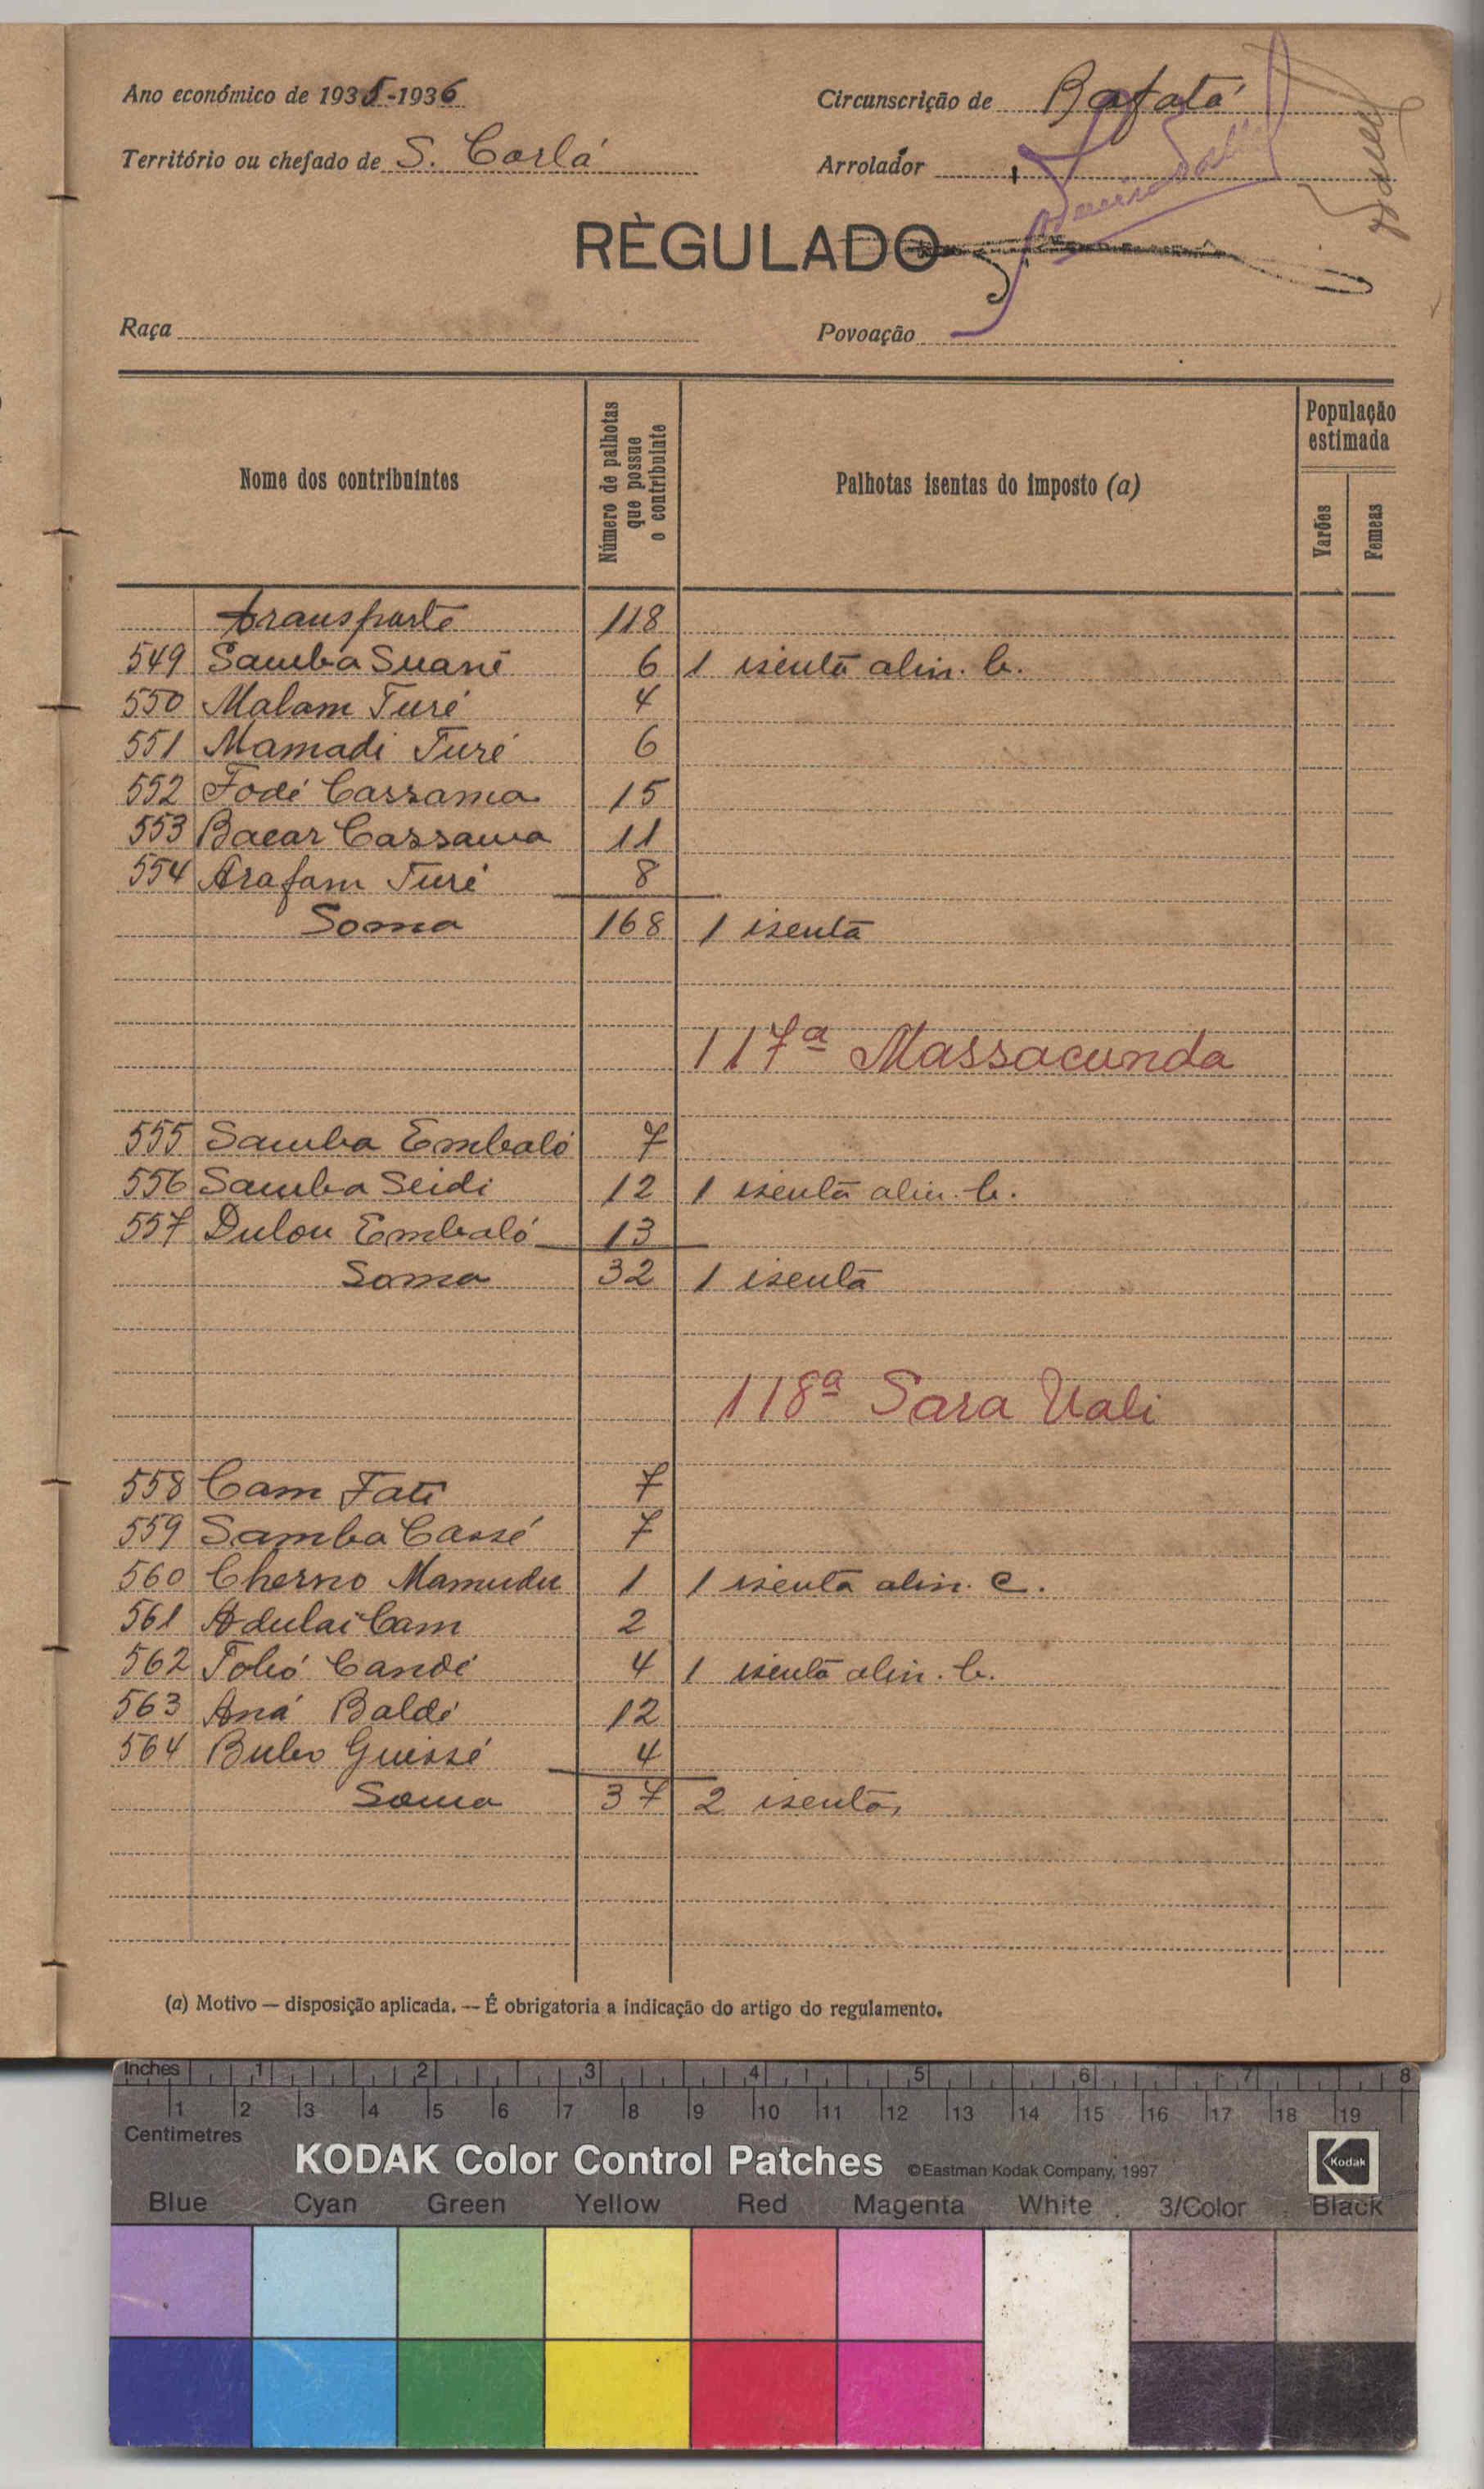 Ano económico de 1935-1936 Circunscrição de Bafatá
Território ou chefado de S. Corlá Arrolador
REGULADO
Raça Povoação
Nome dos contribuintes
Número de palhotas que possue o contribuinte
Palhotas isentas do imposto (a)
População estimada
Varões
Femeas
transporte 118
549 Samba Suané 6 1 isenta alin. b.
550 Malam Turé 4
551 Mamadi Turé 6
552 Fodé Cassama 15
553 Bacar Cassama 11
554 Arafam Turé 8
Soma 168 1 isenta
117ª Massacunda
555 Samba Embaló 7
556 Samba Seidi 12 1 isenta alin. b.
557 Dulou Embaló 13
Soma 32 1 isenta
118ª Sara Uali
558 Cam Fati 7
559 Samba Cassé 7
560 Cherno Mamudu 1 1 isenta alin. c.
561 Adulai Cam 2
562 Tobó Candé 4 1 isenta alin. b.
563 Aná Baldé 12
564 Bubo Guissé 4
Soma 37 2 isentas
(a) Motivo — disposição aplicada. — É obrigatoria a indicação do artigo do regulamento.
Inches 1 2 3 4 5 6 7 8
1 2 3 4 5 6 7 8 9 10 11 12 13 14 15 16 17 18 19
Centimetres
KODAK Color Control Patches ©Eastman Kodak Company, 1997 Kodak
Blue Cyan Green Yellow Red Magenta White 3/Color Black